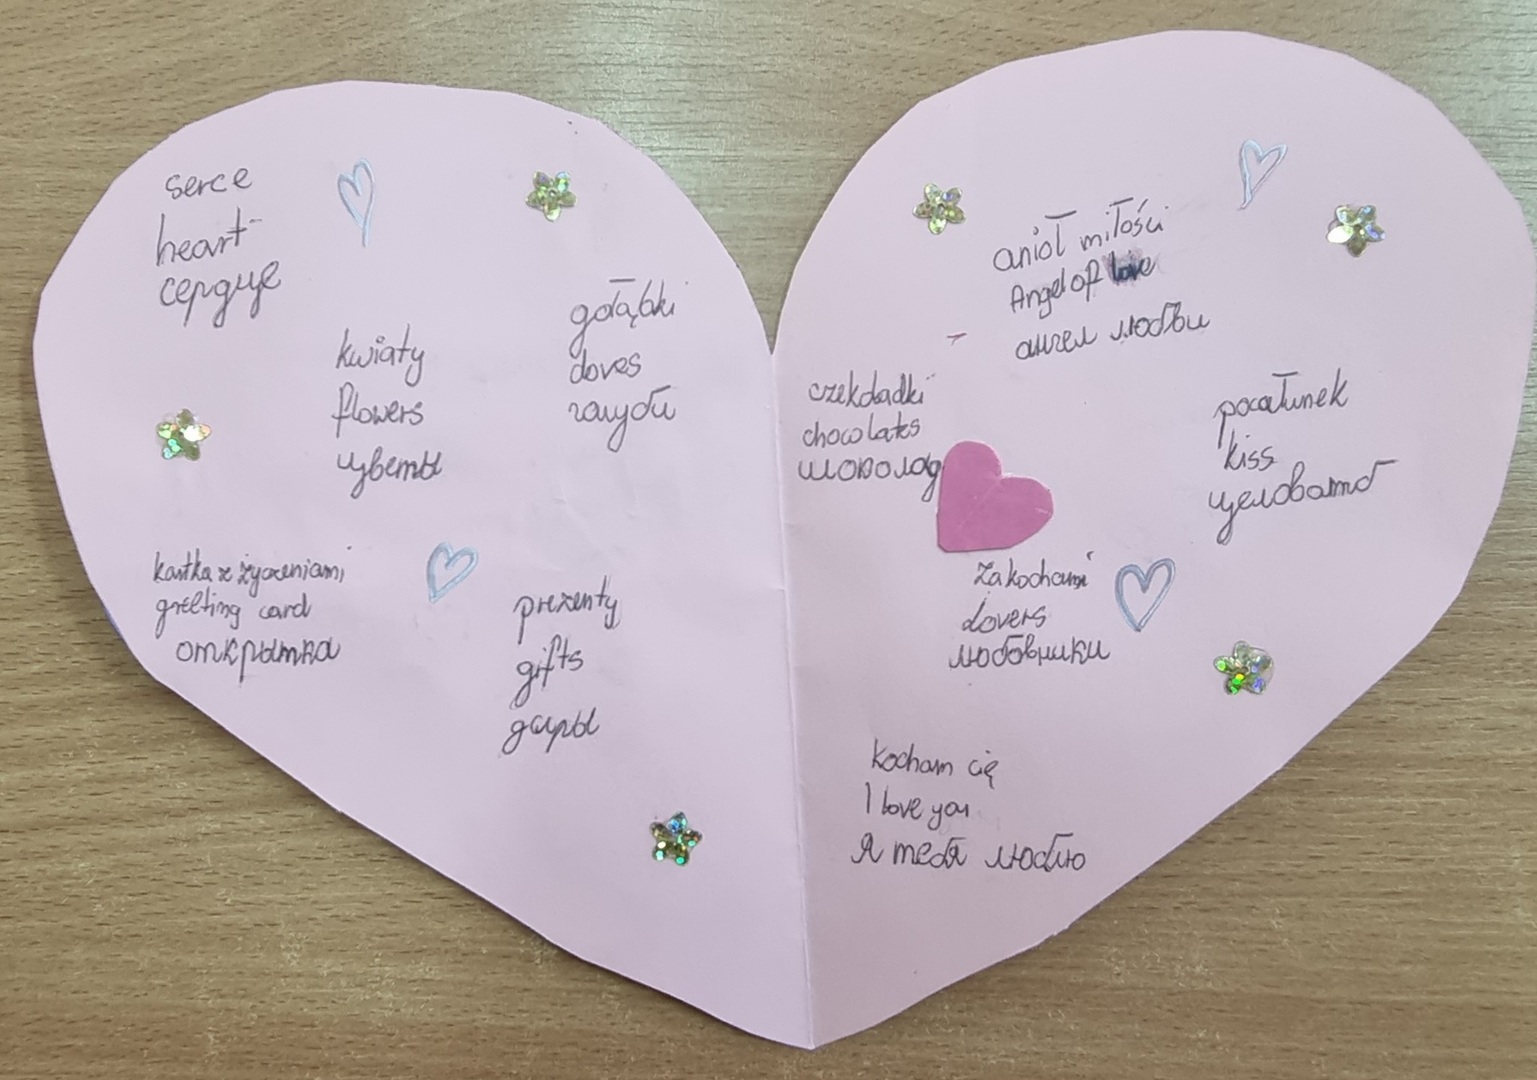 serce
heart
сердце
kwiaty
flowers
цветы
gołąbki
doves
голуби
kartka z życzeniami
greeting card
открытка
prezenty
gifts
дары
anioł miłości
Angel of love
ангел любви
czekoladki
chocolates
шоколад
pocałunek
kiss
целовать
zakochani
Lovers
любовники
kocham cię
I love you
я тебя люблю